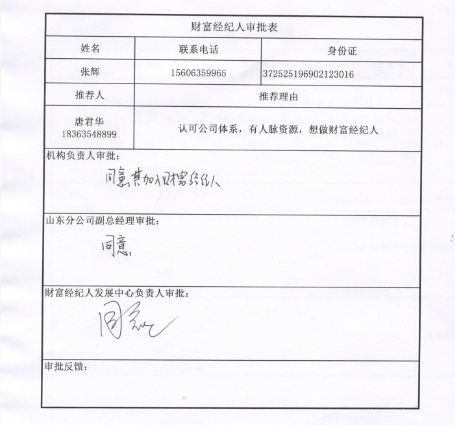 财富经纪人审批表
姓名 联系电话 身份证
张辉 15606359965 372525196902123016
推荐人 推荐理由
唐君华 认可公司体系，有人脉资源，想做财富经纪人
18363548899
机构负责人审批：
同意其加入财富经纪人
山东分公司副总经理审批：
同意
财富经纪人发展中心负责人审批：
同意
审批反馈：